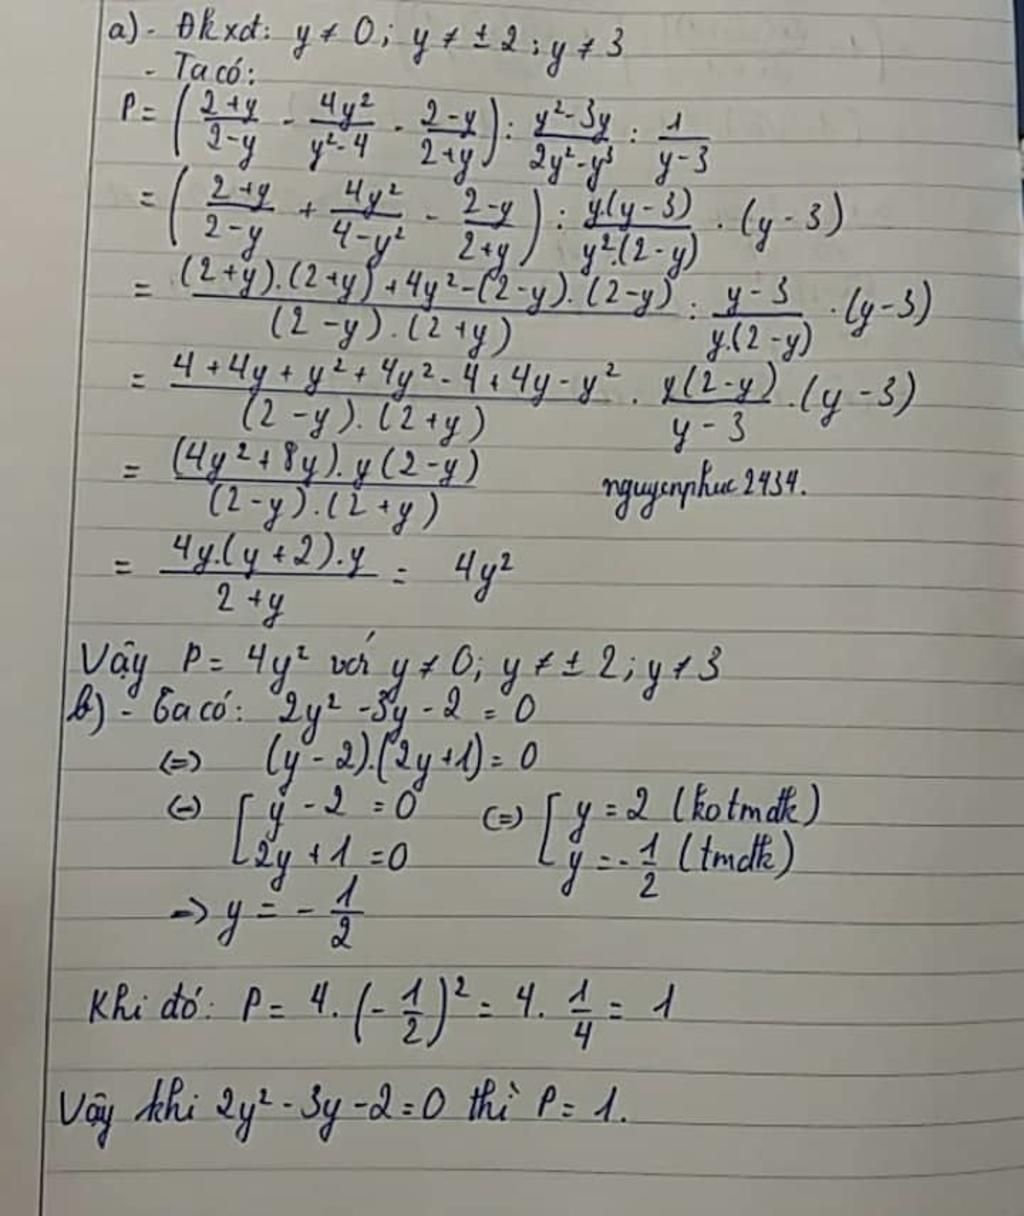 a) - Đkxđ: y ≠ 0; y ≠ ± 2; y ≠ 3
- Ta có:
P = ( (2+y)/(2-y) - 4y²/(y²-4) - (2-y)/(2+y) ) : (y²-3y)/(2y²-y³) : 1/(y-3)
= ( (2+y)/(2-y) + 4y²/(4-y²) - (2-y)/(2+y) ) : y.(y-3)/(y².(2-y)) . (y-3)
= ((2+y).(2+y)+4y²-(2-y).(2-y))/((2-y).(2+y)) : (y-3)/(y.(2-y)) . (y-3)
= (4+4y+y²+4y²-4+4y-y²)/((2-y).(2+y)) . y(2-y)/(y-3) . (y-3)
= ((4y²+8y).y(2-y))/((2-y).(2+y)) nguyenphuc2434.
= (4y.(y+2).y)/(2+y) = 4y²
Vậy P = 4y² với y ≠ 0; y ≠ ± 2; y ≠ 3
b) - Ta có: 2y² - 3y - 2 = 0
(=) (y - 2).(2y+1) = 0
(=) [ y - 2 = 0 (=) [ y = 2 (ko tmđk)
2y + 1 = 0 y = -1/2 (tmđk)
=> y = -1/2
Khi đó: P = 4. (-1/2)² = 4. 1/4 = 1
Vậy khi 2y² - 3y - 2 = 0 thì P = 1.